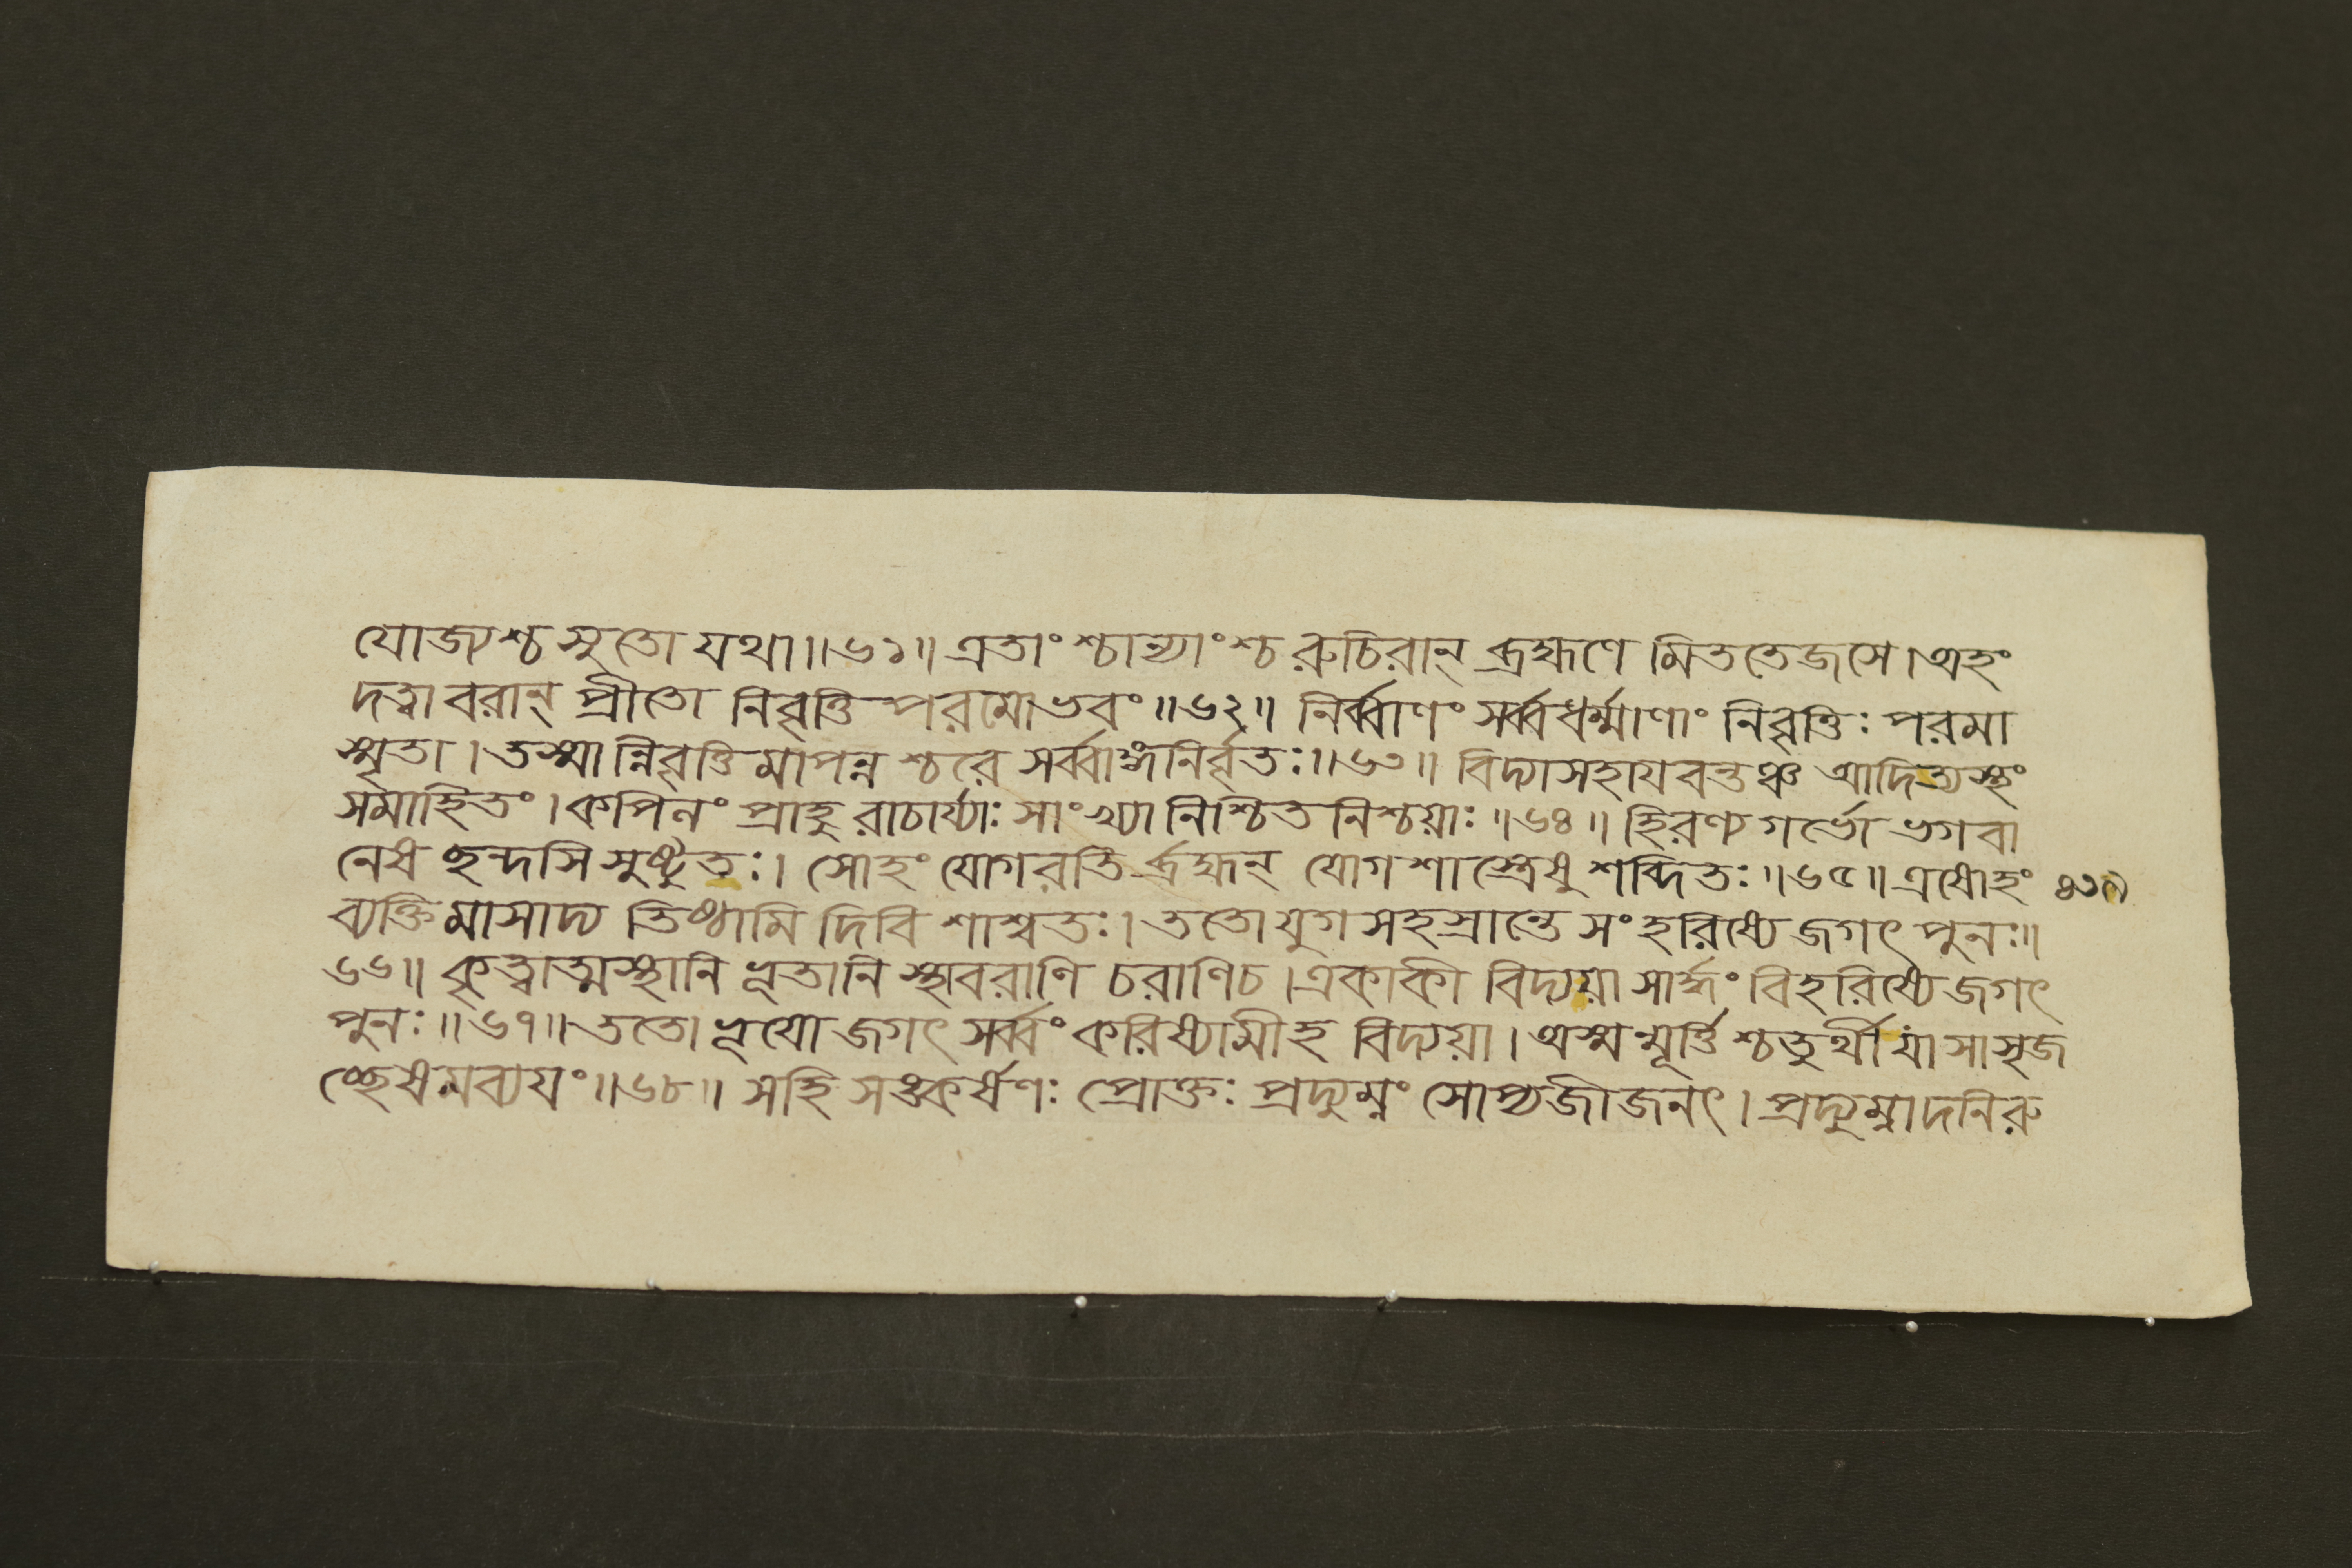 যোজ্যশ্চ সুতো যথা॥৬১॥ এতাংশ্চান্যাংশ্চ রুচিরান্ ব্রহ্মণে মিততেজসে। অহং
দত্বা বরান্ প্রীতো নিবৃত্তি পরমোভবং॥৬২॥ নির্ব্বাণং সর্ব্বধর্ম্মাণাং নিবৃত্তিঃ পরমা
স্মৃতা। তস্মান্নিবৃত্তিমাপন্নশ্চরে সর্ব্বাঙ্গনির্বৃতঃ॥৬৩॥ বিদ্যাসহায়বন্তঞ্চ আদিত্যস্থং
সমাহিতং। কপিলং প্রাহুরাচার্য্যাঃ সাংখ্যা নিশ্চিতনিশ্চয়াঃ॥৬৪॥ হিরণ্যগর্ভো ভগবা
নেষ ছন্দসি সুষ্টুতঃ। সোহং যোগরতির্ব্রহ্মন্ যোগশাস্ত্রেষু শব্দিতঃ॥৬৫॥ এষোহং
ব্যক্তিমাসাদ্য তিষ্ঠামি দিবি শাশ্বতঃ। ততো যুগসহস্রান্তে সংহরিষ্যে জগৎ পুনঃ॥
৬৬॥ কৃত্বাত্মস্থানি ভূতানি স্থাবরাণি চরাণিচ। একাকী বিদ্যয়া সার্দ্ধং বিহরিষ্যে জগৎ
পুনঃ॥৬৭॥ ততো ভূয়ো জগৎ সর্ব্বং করিষ্যামীহ বিদ্যয়া। অস্মন্মূর্ত্তিশ্চতুর্থী যা সাসৃজ
চ্ছেষমব্যয়ং॥৬৮॥ সহি সঙ্কর্ষণঃ প্রোক্তঃ প্রদ্যুম্নং সোপ্যজীজনৎ। প্রদ্যুম্নাদনিরু